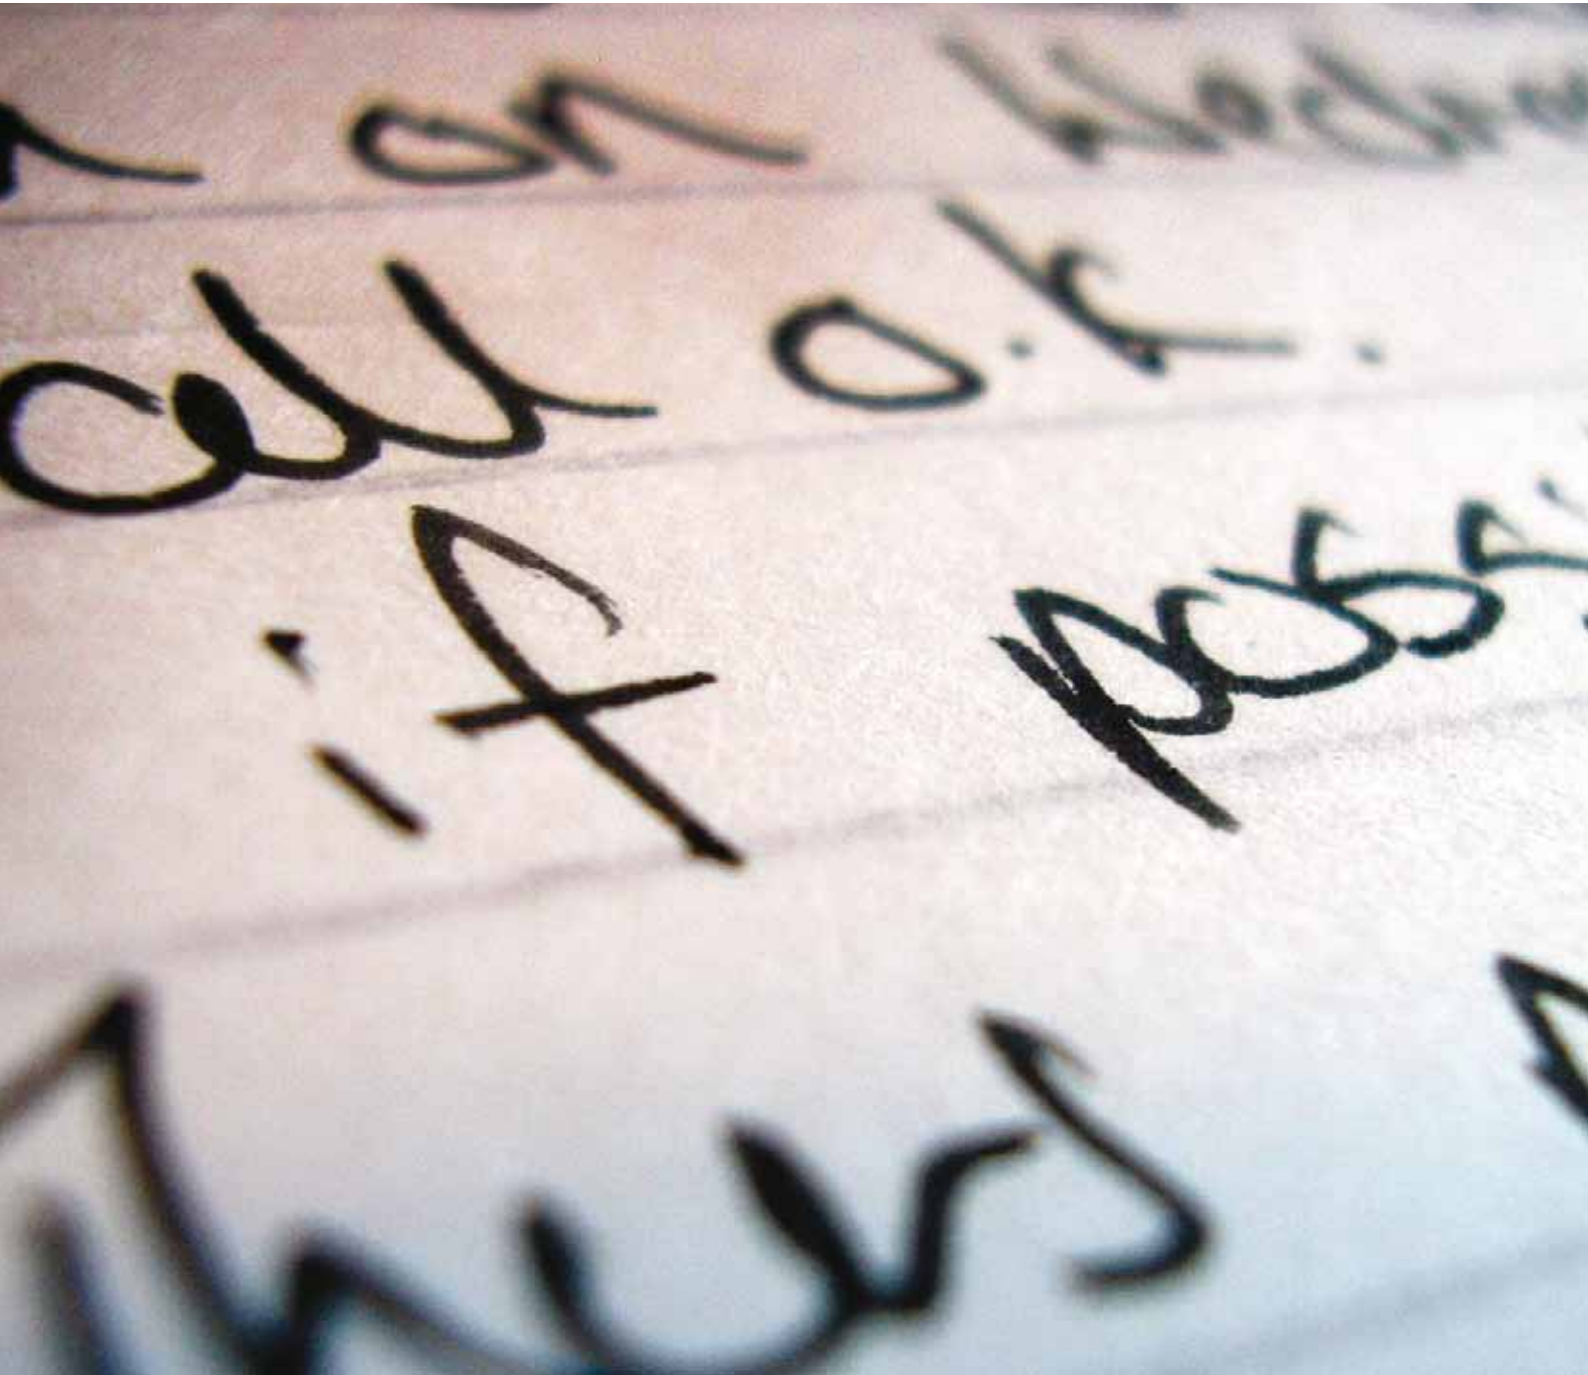 on
cell o.k.
if possi
Thurs